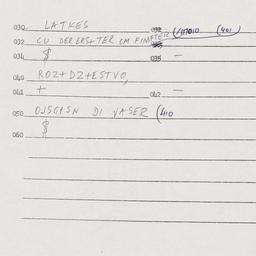 030 LATKES
032 CU DERERS+TER CM FINPTEIR (17010 (401
034 $ 035 —
040 ROZ+DZ+ESTVO,
041 + 042 —
050 OJSGTSN DI VASER (410
060 $